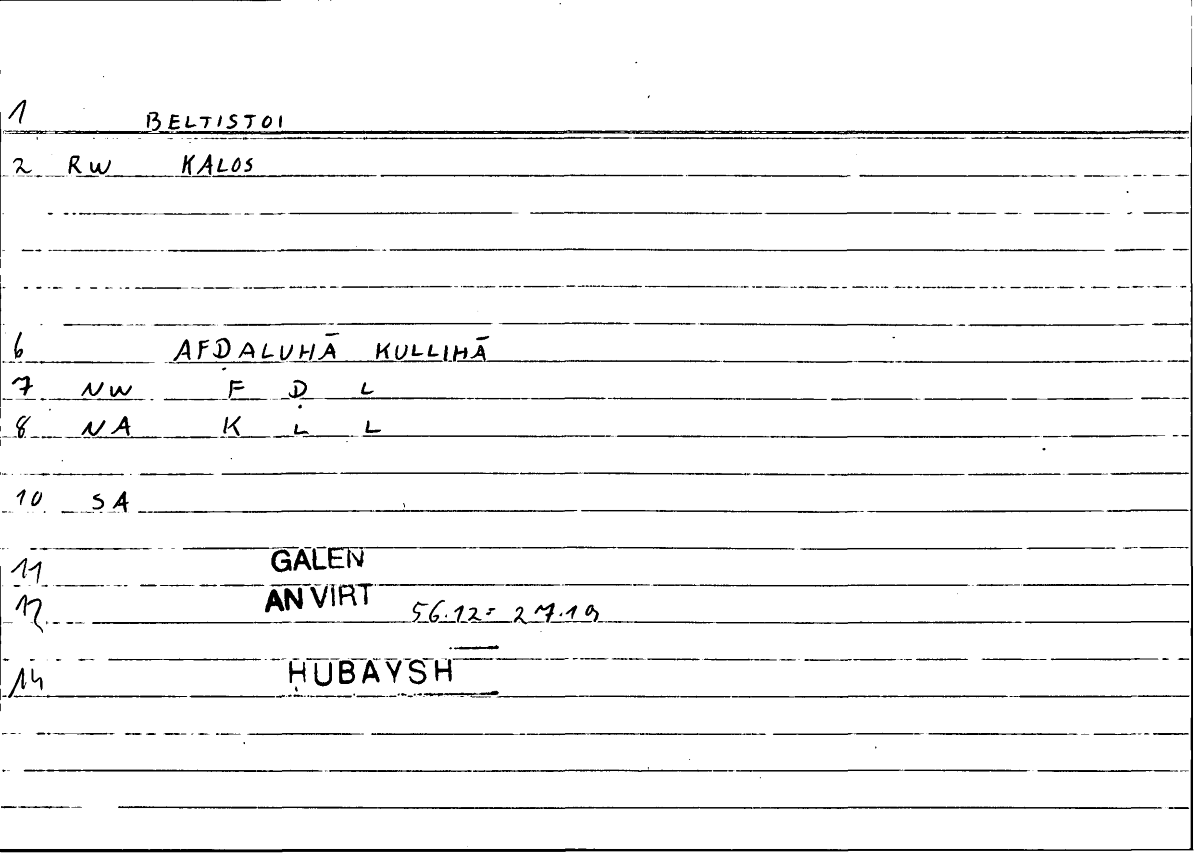 1 BELTISTOI
2 RW KALOS
6 AFḌALUHĀ KULLIHĀ
7 NW F Ḍ L
8 NA K L L
10 SA
11 GALEN
12 AN VIRT 56.12 = 27.19
14 ḤUBAYSH